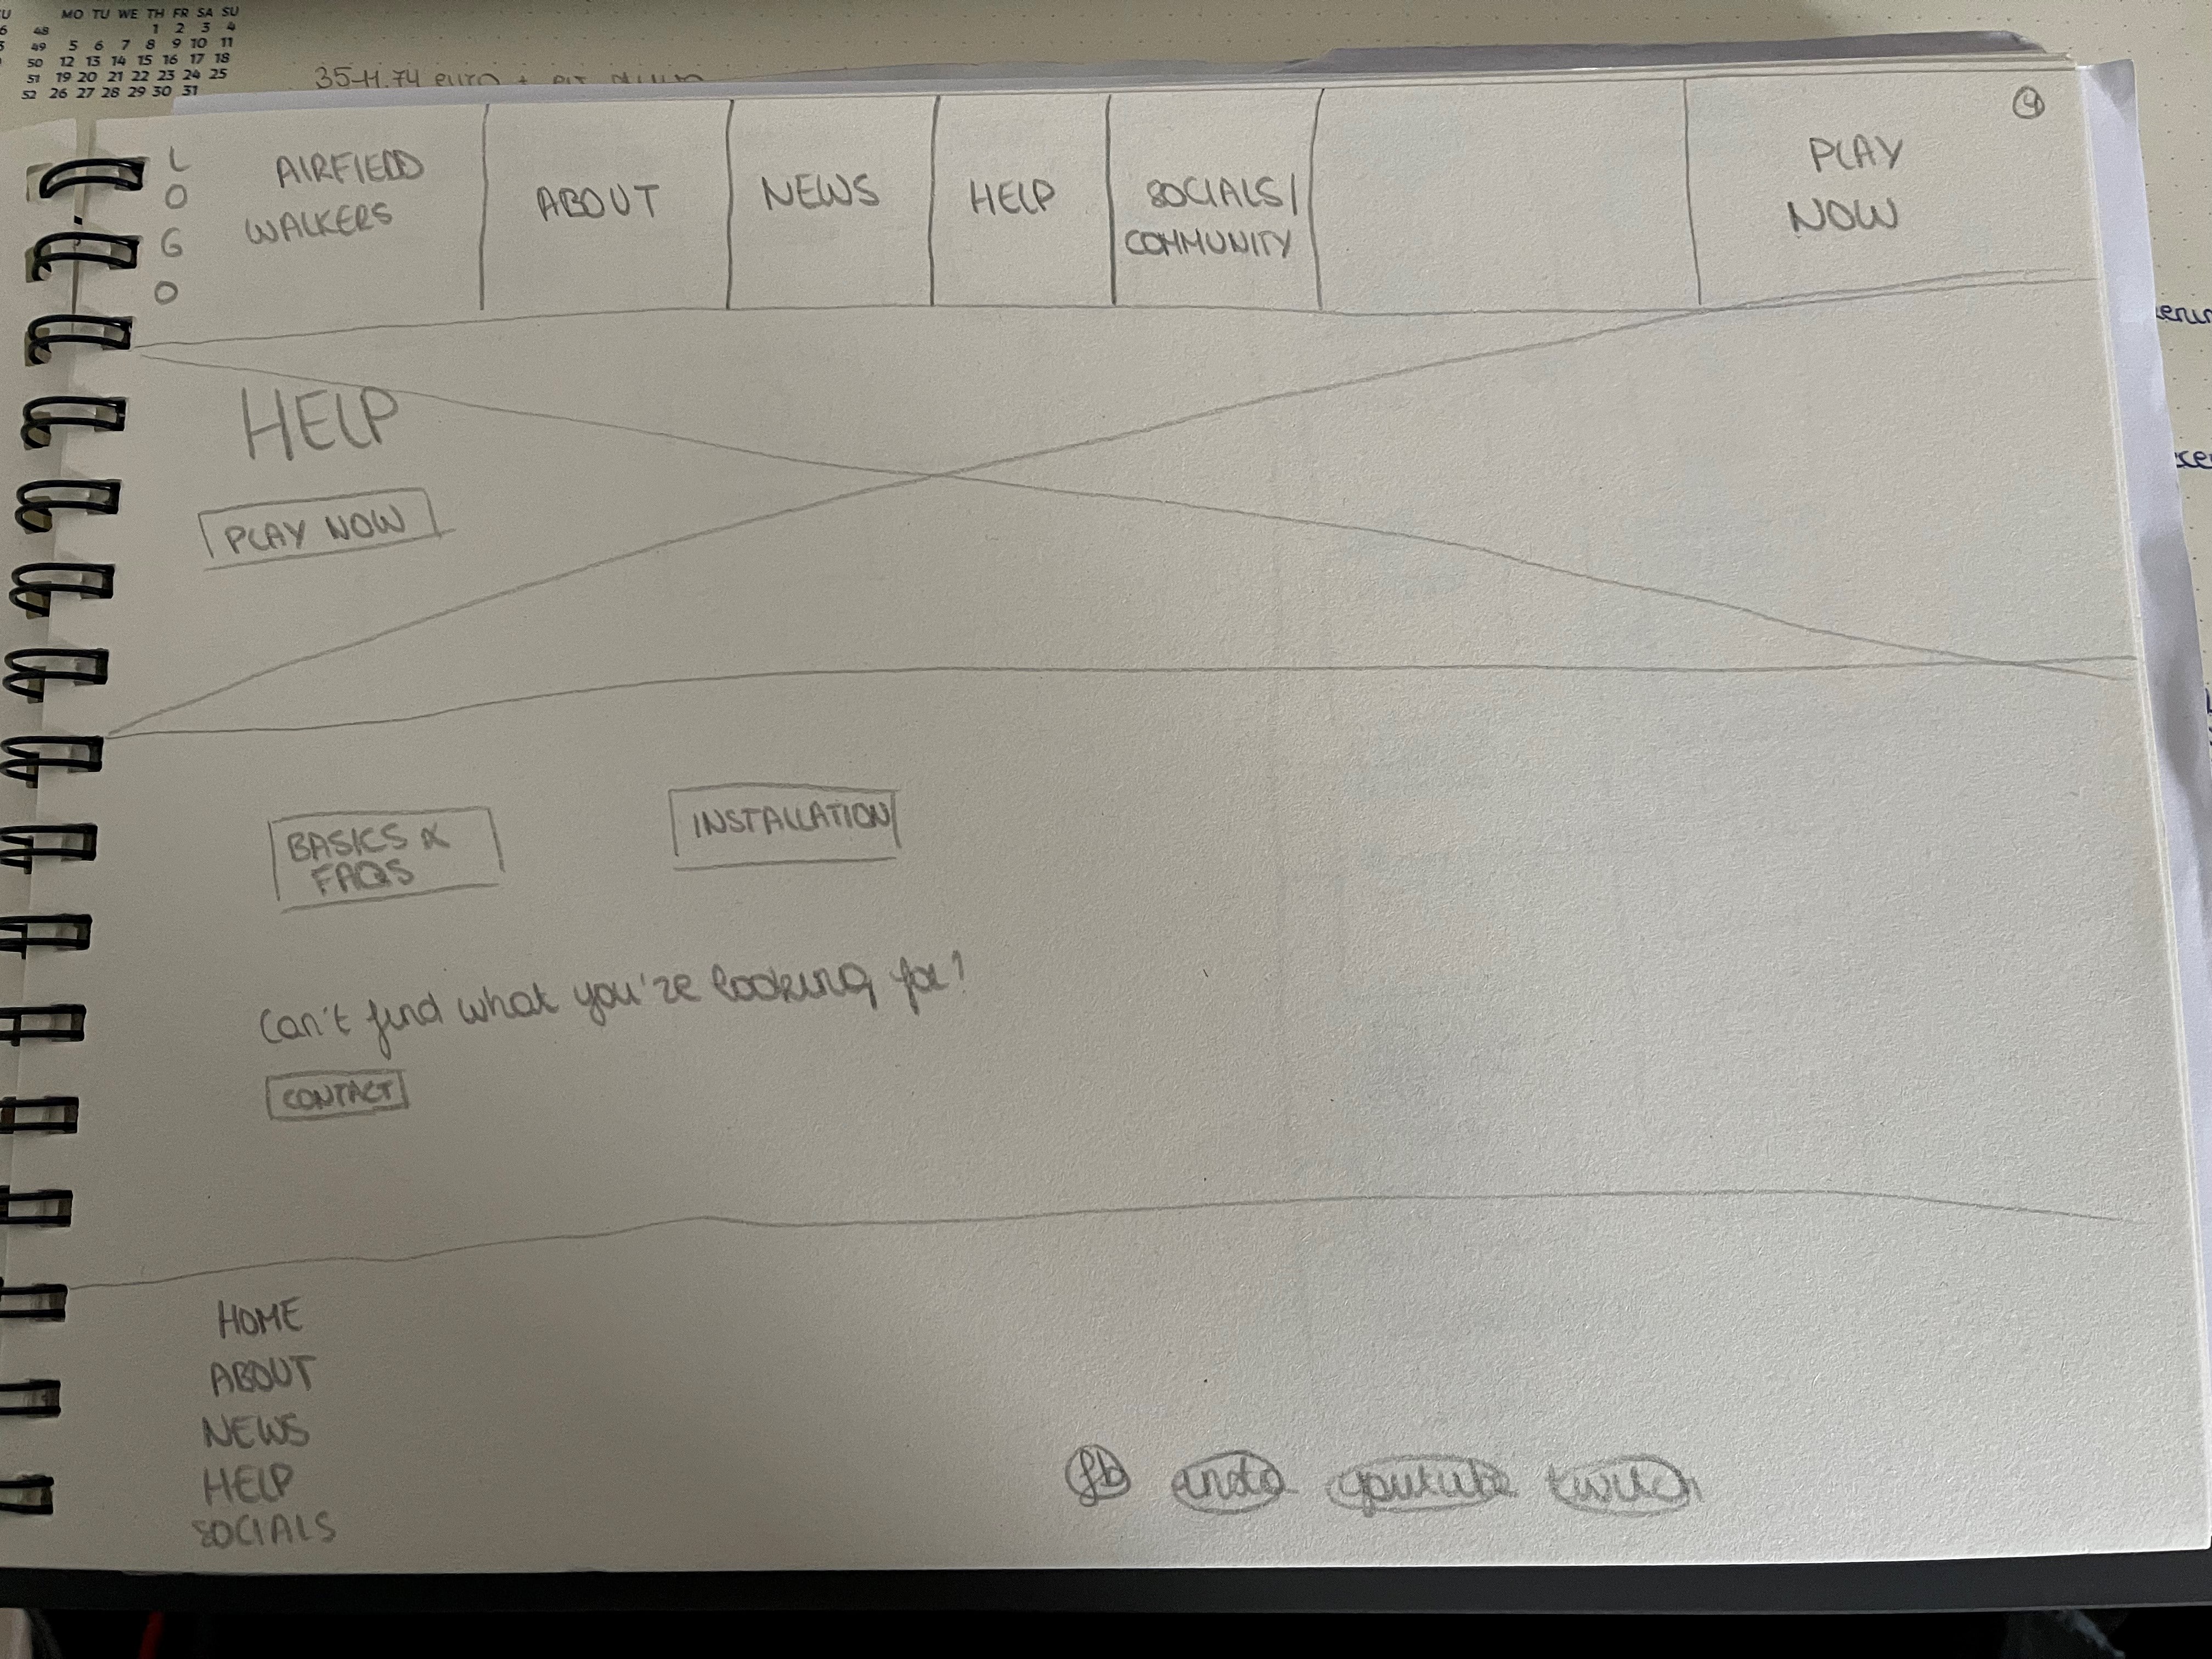 MO TU WE TH FR SA SU
48 1 2 3 4
49 5 6 7 8 9 10 11
50 12 13 14 15 16 17 18
51 19 20 21 22 23 24 25
52 26 27 28 29 30 31
35-11.74 euro +
LOGO
AIRFIELD
WALKERS
ABOUT
NEWS
HELP
SOCIALS/
COMMUNITY
PLAY
NOW
HELP
PLAY NOW
BASICS &
FAQS
INSTALLATION
Can't find what you're looking for?
CONTACT
HOME
ABOUT
NEWS
HELP
SOCIALS
fb insta youtube twitch